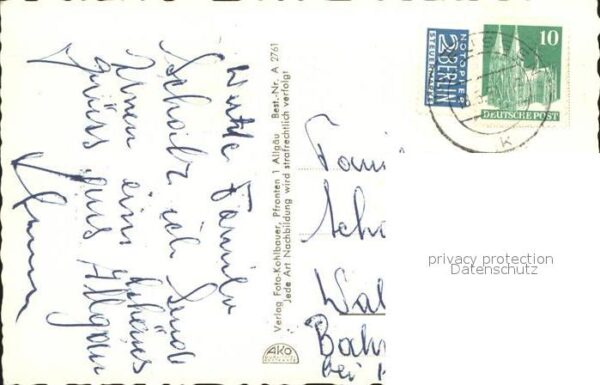 Werte Familie
Schaib ich sende
Ihnen ein schöns
grüss aus Allgäu
Verlag Foto-Kohlbauer, Pfronten 1 Allgäu Best.-Nr. A 2761
Jede Art Nachbildung wird strafrechtlich verfolgt
AKO
NOTOPFER
2 BERLIN
STEUERMARKE
10
DEUTSCHE POST
K
Fami
Scha
Wal
Bahn
bei
privacy protection
Datenschutz